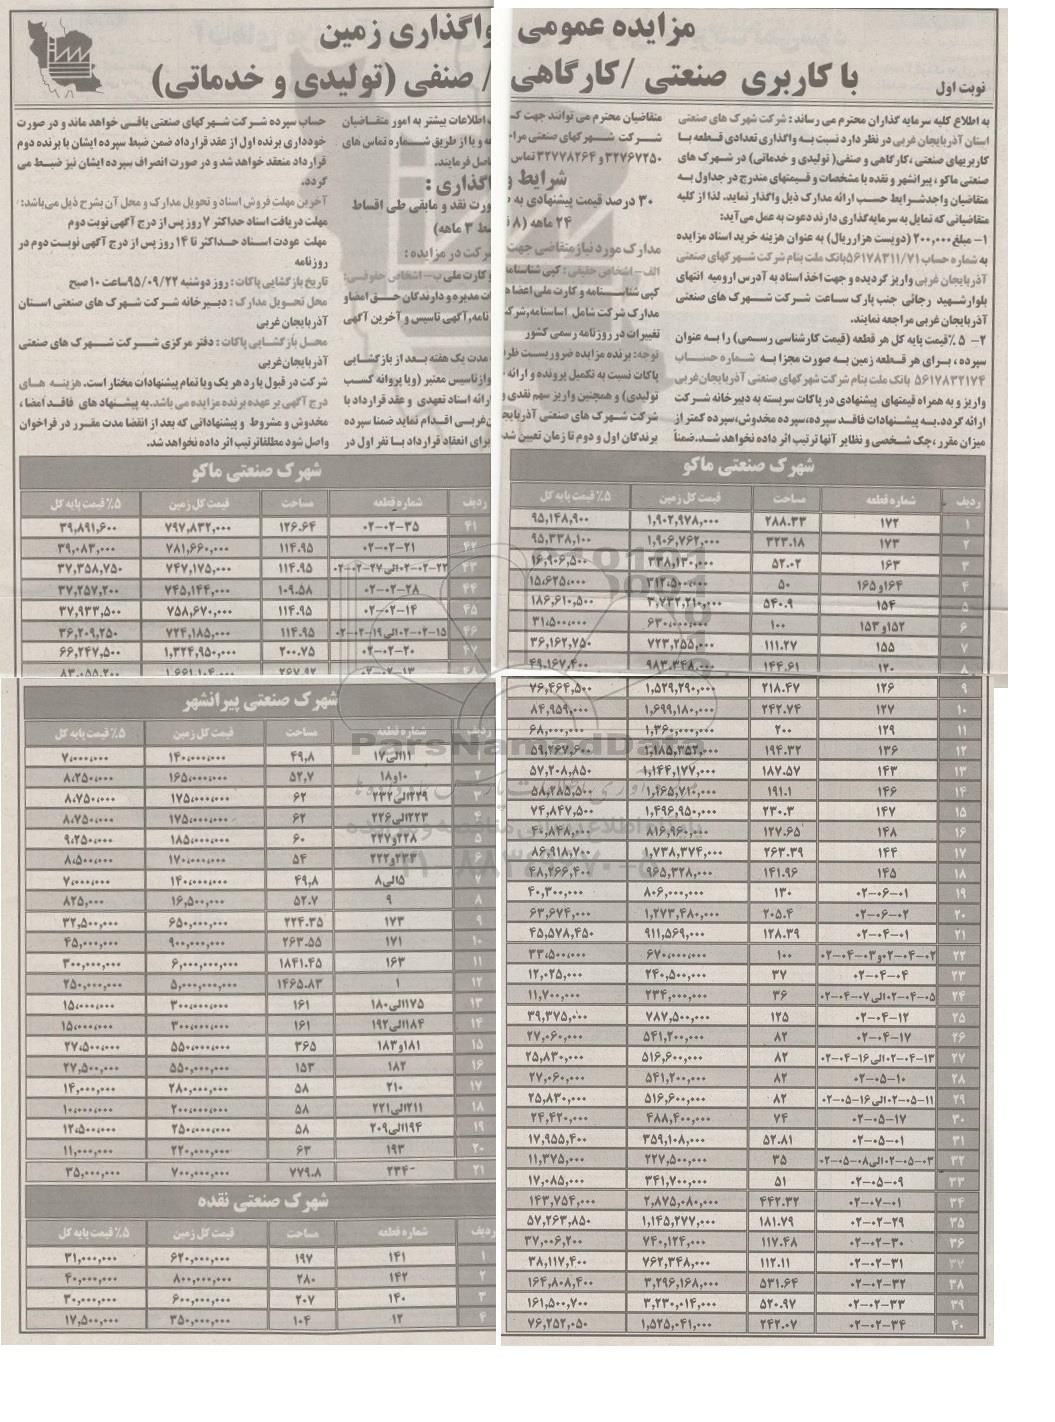 مزایده عمومی واگذاری زمین
با کاربری صنعتی /کارگاهی / صنفی (تولیدی و خدماتی)
نوبت اول
به اطلاع کلیه سرمایه گذاران محترم می رساند : شرکت شهرک های صنعتی
استان آذربایجان غربی در نظر دارد نسبت به واگذاری تعدادی قطعه با
کاربریهای صنعتی ،کارگاهی و صنفی( تولیدی و خدماتی) در شهرک های
صنعتی ماکو ، پیرانشهر و نقده با مشخصات و قیمتهای مندرج در جداول به
متقاضیان واجدشرایط حسب ارائه مدارک ذیل واگذار نماید. لذا از کلیه
متقاضیانی که تمایل به سرمایه‌گذاری دارند دعوت به عمل می‌آید:
۱- مبلغ۲۰۰,۰۰۰ (دویست هزارریال) به عنوان هزینه خرید اسناد مزایده
به شماره حساب ۵۶۱۷۸۳۱۱/۷۱بانک ملت بنام شرکت شهرکهای صنعتی
آذربایجان غربی واریز گردیده و جهت اخذ اسناد به آدرس ارومیه انتهای
بلوارشهید رجائی جنب پارک ساعت شرکت شهرک های صنعتی
آذربایجان غربی مراجعه نمایند.
۲- ۵ ٪قیمت پایه کل هر قطعه (قیمت کارشناسی رسمی) را به عنوان
سپرده ، برای هر قطعه زمین به صورت مجزا به شماره حساب
۵۶۱۷۸۳۲۱۷۴ بانک ملت بنام شرکت شهرکهای صنعتی آذربایجان‌غربی
واریز و به همراه قیمتهای پیشنهادی در پاکات سربسته به دبیرخانه شرکت
ارائه گردد.به پیشنهادات فاقد سپرده،سپرده مخدوش،سپرده کمتر از
میزان مقرر ،چک شخصی و نظایر آنها ترتیب اثر داده نخواهد شد.ضمناً
متقاضیان محترم می توانند جهت کسب اطلاعات بیشتر به امور متقاضیان
شرکت شهرکهای صنعتی
۳۲۷۶۷۲۵۰ و ۳۲۷۷۸۲۶۴ تماس حاصل فرمایند.
شرایط واگذاری :
۳۰ درصد قیمت پیشنهادی به صورت نقد و مابقی طی اقساط
۲۴ ماهه (۸ قسط ۳ ماهه)
مدارک مورد نیازمتقاضی جهت شرکت در مزایده :
الف-اشخاص حقیقی : کپی شناسنامه و کارت ملی ب- اشخاص حقوقی:
کپی شناسنامه و کارت ملی اعضا هیات مدیره و دارندگان حق امضاو
مدارک شرکت شامل اساسنامه,شرکتنامه,آگهی تاسیس و آخرین آگهی
تغییرات در روزنامه رسمی کشور
توجه: برنده مزایده ضروریست ظرف مدت یک هفته بعد از بازگشایی
پاکات نسبت به تکمیل پرونده و ارائه جوازتاسیس معتبر (ویا پروانه کسب
تولیدی) و همچنین واریز سهم نقدی و ارائه اسناد تعهدی و عقد قرارداد با
شرکت شهرک های صنعتی آذربایجان‌غربی اقدام نماید ضمنا سپرده
برندگان اول و دوم تا زمان تعیین شده برای انعقاد قرارداد با نفر اول در
حساب سپرده شرکت شهرکهای صنعتی باقی خواهد ماند و در صورت
خودداری برنده اول از عقد قرارداد ضمن ضبط سپرده ایشان با برنده دوم
قرارداد منعقد خواهد شد و در صورت انصراف سپرده ایشان نیز ضبط می
گردد.
آخرین مهلت فروش اسناد و تحویل مدارک و محل آن بشرح ذیل می‌باشد:
مهلت دریافت اسناد حداکثر ۷ روز پس از درج آگهی نوبت دوم
مهلت عودت اسناد حداکثر تا ۱۴ روز پس از درج آگهی نوبست دوم در
روزنامه
تاریخ بازگشایی پاکات : روز دوشنبه ۹۵/۰۹/۲۲ساعت ۱۰ صبح
محل تحویل مدارک : دبیرخانه شرکت شهرک های صنعتی استان
آذربایجان غربی
محل بازگشایی پاکات : دفتر مرکزی شرکت شهرک های صنعتی
آذربایجان‌غربی
شرکت در قبول یا رد هر یک ویا تمام پیشنهادات مختار است. هزینه های
درج آگهی بر عهده برنده مزایده می باشد.به پیشنهاد های فاقد امضا ،
مخدوش و مشروط و پیشنهاداتی که بعد از انقضا مدت مقرر در فراخوان
واصل شود مطلقاترتیب اثر داده نخواهد شد.
شهرک صنعتی ماکو
ردیف شماره قطعه مساحت قیمت کل زمین ۵٪ قیمت پایه کل
۱ ۱۷۲ ۲۸۸.۳۳ ۱,۹۰۲,۹۷۸,۰۰۰ ۹۵,۱۴۸,۹۰۰
۲ ۱۷۳ ۳۲۳.۱۸ ۱,۹۰۶,۷۶۲,۰۰۰ ۹۵,۳۳۸,۱۰۰
۳ ۱۶۳ ۵۲.۰۲ ۳۳۸,۱۳۰,۰۰۰ ۱۶,۹۰۶,۵۰۰
۴ ۱۶۴و ۱۶۵ ۵۰ ۳۱۲,۵۰۰,۰۰۰ ۱۵,۶۲۵,۰۰۰
۵ ۱۵۴ ۵۴۰.۹ ۳,۷۳۲,۲۱۰,۰۰۰ ۱۸۶,۶۱۰,۵۰۰
۶ ۱۵۲و ۱۵۳ ۱۰۰ ۶۳۰,۰۰۰,۰۰۰ ۳۱,۵۰۰,۰۰۰
۷ ۱۵۵ ۱۱۱.۲۷ ۷۲۳,۲۵۵,۰۰۰ ۳۶,۱۶۲,۷۵۰
۸ ۱۲۰ ۱۴۴.۶۱ ۹۸۳,۳۴۸,۰۰۰ ۴۹,۱۶۷,۴۰۰
۹ ۱۲۶ ۲۱۸.۴۷ ۱,۵۲۹,۲۹۰,۰۰۰ ۷۶,۴۶۴,۵۰۰
۱۰ ۱۲۷ ۲۴۲.۷۴ ۱,۶۹۹,۱۸۰,۰۰۰ ۸۴,۹۵۹,۰۰۰
۱۱ ۱۲۹ ۲۰۰ ۱,۳۶۰,۰۰۰,۰۰۰ ۶۸,۰۰۰,۰۰۰
۱۲ ۱۳۶ ۱۹۴.۳۲ ۱,۱۸۵,۳۵۲,۰۰۰ ۵۹,۲۶۷,۶۰۰
۱۳ ۱۴۳ ۱۸۷.۵۷ ۱,۱۴۴,۱۷۷,۰۰۰ ۵۷,۲۰۸,۸۵۰
۱۴ ۱۴۶ ۱۹۱.۱ ۱,۱۶۵,۷۱۰,۰۰۰ ۵۸,۲۸۵,۵۰۰
۱۵ ۱۴۷ ۲۳۰.۳ ۱,۴۹۶,۹۵۰,۰۰۰ ۷۴,۸۴۷,۵۰۰
۱۶ ۱۴۸ ۱۲۷.۶۵ ۸۱۶,۹۶۰,۰۰۰ ۴۰,۸۴۸,۰۰۰
۱۷ ۱۴۴ ۲۶۳.۳۹ ۱,۷۳۸,۳۷۴,۰۰۰ ۸۶,۹۱۸,۷۰۰
۱۸ ۱۴۵ ۱۴۱.۹۶ ۹۶۵,۳۲۸,۰۰۰ ۴۸,۲۶۶,۴۰۰
۱۹ ۰۲-۰۶-۰۱ ۱۳۰ ۸۰۶,۰۰۰,۰۰۰ ۴۰,۳۰۰,۰۰۰
۲۰ ۰۲-۰۶-۰۲ ۲۰۵.۴ ۱,۲۷۳,۴۸۰,۰۰۰ ۶۳,۶۷۴,۰۰۰
۲۱ ۰۲-۰۴-۰۱ ۱۲۸.۳۹ ۹۱۱,۵۶۹,۰۰۰ ۴۵,۵۷۸,۴۵۰
۲۲ ۰۲-۰۴-۰۲و۰۲-۰۴-۰۳ ۱۰۰ ۶۷۰,۰۰۰,۰۰۰ ۳۳,۵۰۰,۰۰۰
۲۳ ۰۲-۰۴-۰۴ ۳۷ ۲۴۰,۵۰۰,۰۰۰ ۱۲,۰۲۵,۰۰۰
۲۴ ۰۲-۰۴-۰۵الی ۰۲-۰۴-۰۷ ۳۶ ۲۳۴,۰۰۰,۰۰۰ ۱۱,۷۰۰,۰۰۰
۲۵ ۰۲-۰۴-۱۲ ۱۲۵ ۷۸۷,۵۰۰,۰۰۰ ۳۹,۳۷۵,۰۰۰
۲۶ ۰۲-۰۴-۱۷ ۸۲ ۵۴۱,۲۰۰,۰۰۰ ۲۷,۰۶۰,۰۰۰
۲۷ ۰۲-۰۴-۱۳الی ۰۲-۰۴-۱۶ ۸۲ ۵۱۶,۶۰۰,۰۰۰ ۲۵,۸۳۰,۰۰۰
۲۸ ۰۲-۰۵-۱۰ ۸۲ ۵۴۱,۲۰۰,۰۰۰ ۲۷,۰۶۰,۰۰۰
۲۹ ۰۲-۰۵-۱۱الی ۰۲-۰۵-۱۶ ۸۲ ۵۱۶,۶۰۰,۰۰۰ ۲۵,۸۳۰,۰۰۰
۳۰ ۰۲-۰۵-۱۷ ۷۴ ۴۸۸,۴۰۰,۰۰۰ ۲۴,۴۲۰,۰۰۰
۳۱ ۰۲-۰۵-۰۱ ۵۲.۸۱ ۳۵۹,۱۰۸,۰۰۰ ۱۷,۹۵۵,۴۰۰
۳۲ ۰۲-۰۵-۰۳الی ۰۲-۰۵-۰۸ ۳۵ ۲۲۷,۵۰۰,۰۰۰ ۱۱,۳۷۵,۰۰۰
۳۳ ۰۲-۰۵-۰۹ ۵۱ ۳۴۱,۷۰۰,۰۰۰ ۱۷,۰۸۵,۰۰۰
۳۴ ۰۲-۰۷-۰۱ ۴۴۲.۳۲ ۲,۸۷۵,۰۸۰,۰۰۰ ۱۴۳,۷۵۴,۰۰۰
۳۵ ۰۲-۰۲-۲۹ ۱۸۱.۷۹ ۱,۱۴۵,۲۷۷,۰۰۰ ۵۷,۲۶۳,۸۵۰
۳۶ ۰۲-۰۲-۳۰ ۱۱۷.۴۸ ۷۴۰,۱۲۴,۰۰۰ ۳۷,۰۰۶,۲۰۰
۳۷ ۰۲-۰۲-۳۱ ۱۱۲.۱۱ ۷۶۲,۳۴۸,۰۰۰ ۳۸,۱۱۷,۴۰۰
۳۸ ۰۲-۰۲-۳۲ ۵۳۱.۶۴ ۳,۲۹۶,۱۶۸,۰۰۰ ۱۶۴,۸۰۸,۴۰۰
۳۹ ۰۲-۰۲-۳۳ ۵۲۰.۹۷ ۳,۲۳۰,۰۱۴,۰۰۰ ۱۶۱,۵۰۰,۷۰۰
۴۰ ۰۲-۰۲-۳۴ ۲۴۲.۰۷ ۱,۵۲۵,۰۴۱,۰۰۰ ۷۶,۲۵۲,۰۵۰
شهرک صنعتی ماکو
ردیف شماره قطعه مساحت قیمت کل زمین ۵٪ قیمت پایه کل
۴۱ ۰۲-۰۲-۳۵ ۱۲۶.۶۴ ۷۹۷,۸۳۲,۰۰۰ ۳۹,۸۹۱,۶۰۰
۴۲ ۰۲-۰۲-۲۱ ۱۱۴.۹۵ ۷۸۱,۶۶۰,۰۰۰ ۳۹,۰۸۳,۰۰۰
۴۳ ۰۲-۰۲-۲۲الی ۰۲-۰۲-۲۷ ۱۱۴.۹۵ ۷۴۷,۱۷۵,۰۰۰ ۳۷,۳۵۸,۷۵۰
۴۴ ۰۲-۰۲-۲۸ ۱۰۹.۵۸ ۷۴۵,۱۴۴,۰۰۰ ۳۷,۲۵۷,۲۰۰
۴۵ ۰۲-۰۲-۱۴ ۱۱۴.۹۵ ۷۵۸,۶۷۰,۰۰۰ ۳۷,۹۳۳,۵۰۰
۴۶ ۰۲-۰۲-۱۵الی ۰۲-۰۲-۱۹ ۱۱۴.۹۵ ۷۲۴,۱۸۵,۰۰۰ ۳۶,۲۰۹,۲۵۰
۴۷ ۰۲-۰۲-۲۰ ۲۰۰.۷۵ ۱,۳۲۴,۹۵۰,۰۰۰ ۶۶,۲۴۷,۵۰۰
۴۸ ۰۲-۰۲-۱۳ ۲۶۷.۹۲ ۱,۶۶۱,۱۰۴,۰۰۰ ۸۳,۰۵۵,۲۰۰
شهرک صنعتی پیرانشهر
ردیف شماره قطعه مساحت قیمت کل زمین ۵٪ قیمت پایه کل
۱ ۱۱الی۱۷ ۴۹,۸ ۱۴۰,۰۰۰,۰۰۰ ۷,۰۰۰,۰۰۰
۲ ۱۰و۱۸ ۵۲,۷ ۱۶۵,۰۰۰,۰۰۰ ۸,۲۵۰,۰۰۰
۳ ۲۲۹الی۲۳۲ ۶۲ ۱۷۵,۰۰۰,۰۰۰ ۸,۷۵۰,۰۰۰
۴ ۲۲۳الی۲۲۶ ۶۲ ۱۷۵,۰۰۰,۰۰۰ ۸,۷۵۰,۰۰۰
۵ ۲۲۸و۲۲۷ ۶۰ ۱۸۵,۰۰۰,۰۰۰ ۹,۲۵۰,۰۰۰
۶ ۲۳۳و۲۲۲ ۵۴ ۱۷۰,۰۰۰,۰۰۰ ۸,۵۰۰,۰۰۰
۷ ۵الی۸ ۴۹,۸ ۱۴۰,۰۰۰,۰۰۰ ۷,۰۰۰,۰۰۰
۸ ۹ ۵۲.۷ ۱۶,۵۰۰,۰۰۰ ۸۲۵,۰۰۰
۹ ۱۷۳ ۲۲۴.۳۵ ۶۵۰,۰۰۰,۰۰۰ ۳۲,۵۰۰,۰۰۰
۱۰ ۱۷۱ ۲۶۳.۵۵ ۹۰۰,۰۰۰,۰۰۰ ۴۵,۰۰۰,۰۰۰
۱۱ ۱۶۳ ۱۸۴۱.۴۵ ۶,۰۰۰,۰۰۰,۰۰۰ ۳۰۰,۰۰۰,۰۰۰
۱۲ ۱ ۱۴۶۵.۸۳ ۵,۰۰۰,۰۰۰,۰۰۰ ۲۵۰,۰۰۰,۰۰۰
۱۳ ۱۷۵الی۱۸۰ ۱۶۱ ۳۰۰,۰۰۰,۰۰۰ ۱۵,۰۰۰,۰۰۰
۱۴ ۱۸۴الی۱۹۲ ۱۶۱ ۳۰۰,۰۰۰,۰۰۰ ۱۵,۰۰۰,۰۰۰
۱۵ ۱۸۱و۱۸۳ ۳۶۵ ۵۵۰,۰۰۰,۰۰۰ ۲۷,۵۰۰,۰۰۰
۱۶ ۱۸۲ ۱۵۳ ۵۵۰,۰۰۰,۰۰۰ ۲۷,۵۰۰,۰۰۰
۱۷ ۲۱۰ ۵۸ ۲۸۰,۰۰۰,۰۰۰ ۱۴,۰۰۰,۰۰۰
۱۸ ۲۱۱الی۲۲۱ ۵۸ ۲۰۰,۰۰۰,۰۰۰ ۱۰,۰۰۰,۰۰۰
۱۹ ۱۹۴الی۲۰۹ ۵۸ ۲۵۰,۰۰۰,۰۰۰ ۱۲,۵۰۰,۰۰۰
۲۰ ۱۹۳ ۶۳ ۲۲۰,۰۰۰,۰۰۰ ۱۱,۰۰۰,۰۰۰
۲۱ ۲۳۴- ۷۷۹.۸ ۷۰۰,۰۰۰,۰۰۰ ۳۵,۰۰۰,۰۰۰
شهرک صنعتی نقده
ردیف شماره قطعه مساحت قیمت کل زمین ۵٪ قیمت پایه کل
۱ ۱۴۱ ۱۹۷ ۶۲۰,۰۰۰,۰۰۰ ۳۱,۰۰۰,۰۰۰
۲ ۱۴۲ ۲۸۰ ۸۰۰,۰۰۰,۰۰۰ ۴۰,۰۰۰,۰۰۰
۳ ۱۴۰ ۲۰۷ ۶۰۰,۰۰۰,۰۰۰ ۳۰,۰۰۰,۰۰۰
۴ ۱۲ ۱۰۴ ۳۵۰,۰۰۰,۰۰۰ ۱۷,۵۰۰,۰۰۰
ParsNamadData